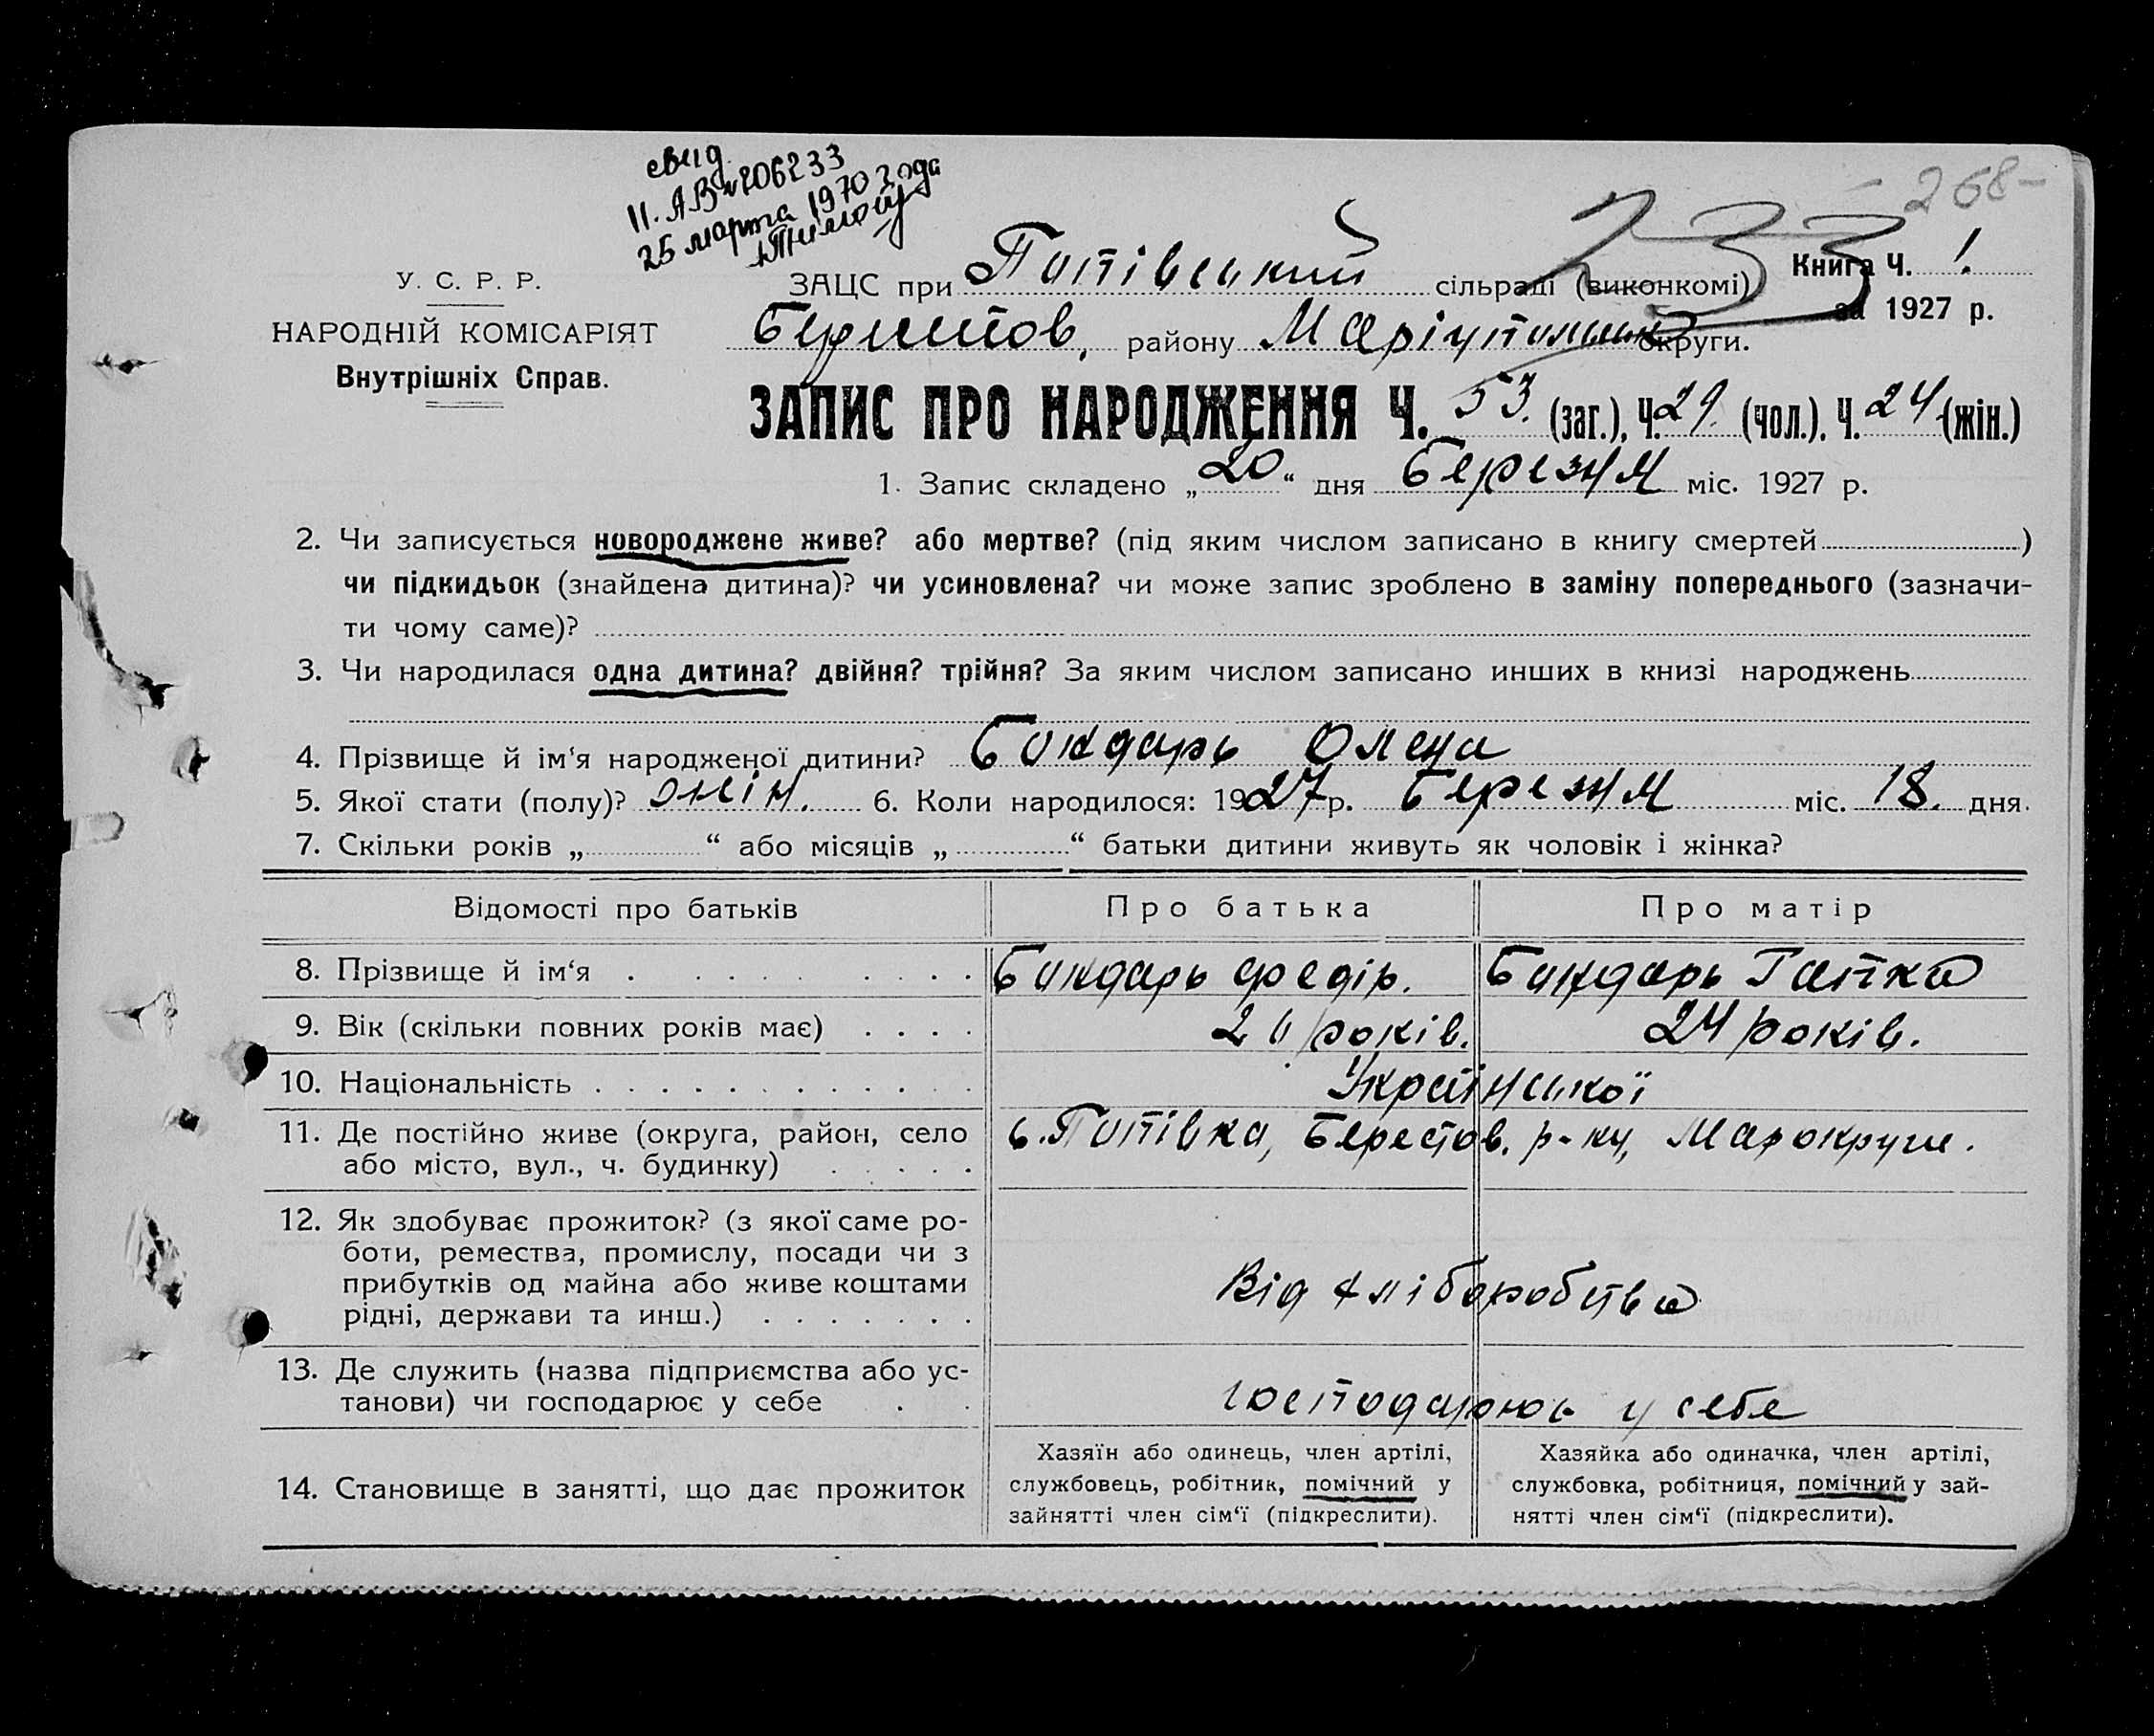 свид.
II. АВ № 206233
25 марта 1970 года
268-
233
У. С. Р. Р.
НАРОДНІЙ КОМІСАРІЯТ
Внутрішніх Справ.
ЗАЦС при Попівський сільраді (виконкомі)
Книга Ч. 1.
за 1927 р.
Берестов, району Маріупольської округи.
ЗАПИС ПРО НАРОДЖЕННЯ Ч. 53. (заг.), Ч. 29. (чол.), Ч. 24 (жін.)
1. Запис складено „20“ дня Березня міс. 1927 р.
2. Чи записується новороджене живе? або мертве? (під яким числом записано в книгу смертей )
чи підкидьок (знайдена дитина)? чи усиновлена? чи може запис зроблено в заміну попереднього (зазначи-
ти чому саме)?
3. Чи народилася одна дитина? двійня? трійня? За яким числом записано инших в книзі народжень
4. Прізвище й ім‘я народженої дитини? Бондарь Олена
5. Якої стати (полу)? жін. 6. Коли народилося: 1927 р. Березня міс. 18. дня.
7. Скільки років „ “ або місяців „ “ батьки дитини живуть як чоловік і жінка?
Відомості про батьків Про батька Про матір
8. Прізвище й ім‘я Бондарь Федір. Бондарь Гапка
9. Вік (скільки повних років має) років. 24 років.
10. Національність Української
11. Де постійно живе (округа, район, село с. Попівка, Берестов. р-ну, Марокруги.
або місто, вул., ч. будинку)
12. Як здобуває прожиток? (з якої саме ро-
боти, ремества, промислу, посади чи з
прибутків од майна або живе коштами Від хліборобства
рідні, держави та инш.)
13. Де служить (назва підприємства або ус-
танови) чи господарює у себе господарює у себе
14. Становище в занятті, що дає прожиток
Хазяїн або одинець, член артілі,
службовець, робітник, помічний у
зайнятті член сім‘ї (підкреслити).
Хазяйка або одиначка, член артілі,
службовка, робітниця, помічний у зай-
нятті член сім‘ї (підкреслити).